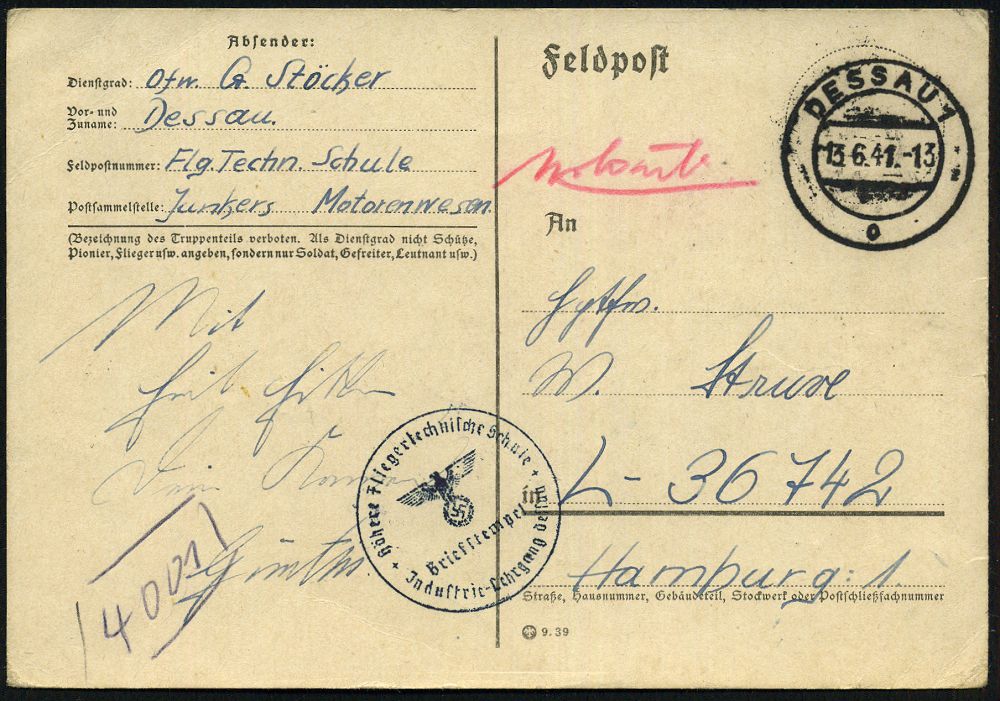 Absender:
Dienstgrad: Ofw. G. Stöcker
Vor- und
Zuname: Dessau.
Feldpostnummer: Flg. Techn. Schule
Postsammelstelle: Junkers Motorenwesen
(Bezeichnung des Truppenteils verboten. Als Dienstgrad nicht Schütze,
Pionier, Flieger usw. angeben, sondern nur Soldat, Gefreiter, Leutnant usw.)
Mit
Heil Hitler
Dein
Günther.
4001
Höhere Fliegertechnische Schule
Briefstempel
Industrie-Lehrgang Dessau
Feldpost
DESSAU 1
13.6.41.-13
o
An
W. Struve
in L-36742
Hamburg: 1.
Straße, Hausnummer, Gebäudeteil, Stockwerk oder Postschließfachnummer
9.39